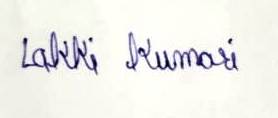 Lakki Kumari